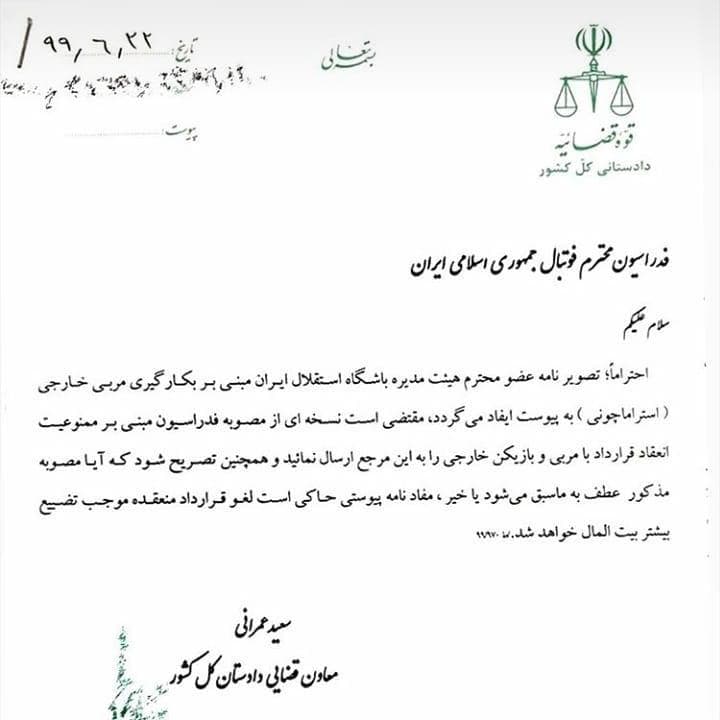 بسمه تعالی
قوّه قضائیّه
دادستانی کلّ کشور
تاریخ: ۹۹٫۶٫۲۲
پیوست:
فدراسیون محترم فوتبال جمهوری اسلامی ایران
سلام علیکم
احتراماً؛ تصویر نامه عضو محترم هیئت مدیره باشگاه استقلال ایران مبنی بر بکارگیری مربی خارجی
( استراماچونی ) به پیوست ایفاد می‌گردد، مقتضی است نسخه ای از مصوبه فدراسیون مبنی بر ممنوعیت
انعقاد قرارداد با مربی و بازیکن خارجی را به این مرجع ارسال نمائید و همچنین تصریح شود که آیا مصوبه
مذکور عطف به ماسبق می‌شود یا خیر ، مفاد نامه پیوستی حاکی است لغو قرارداد منعقده موجب تضییع
بیشتر بیت المال خواهد شد.
سعید عمرانی
معاون قضایی دادستان کل کشور